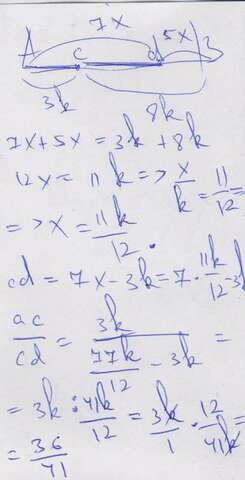 7x
A c d 5x B
3k 8k
7x+5x = 3k+8k
12x = 11k => x/k = 11/12 =
=> x = 11k/12.
cd = 7x-3k = 7·11k/12-3k
ac/cd = 3k/(77k/12 - 3k) =
= 3k : 41k/12 = 3k/1 · 12/41k =
= 36/41